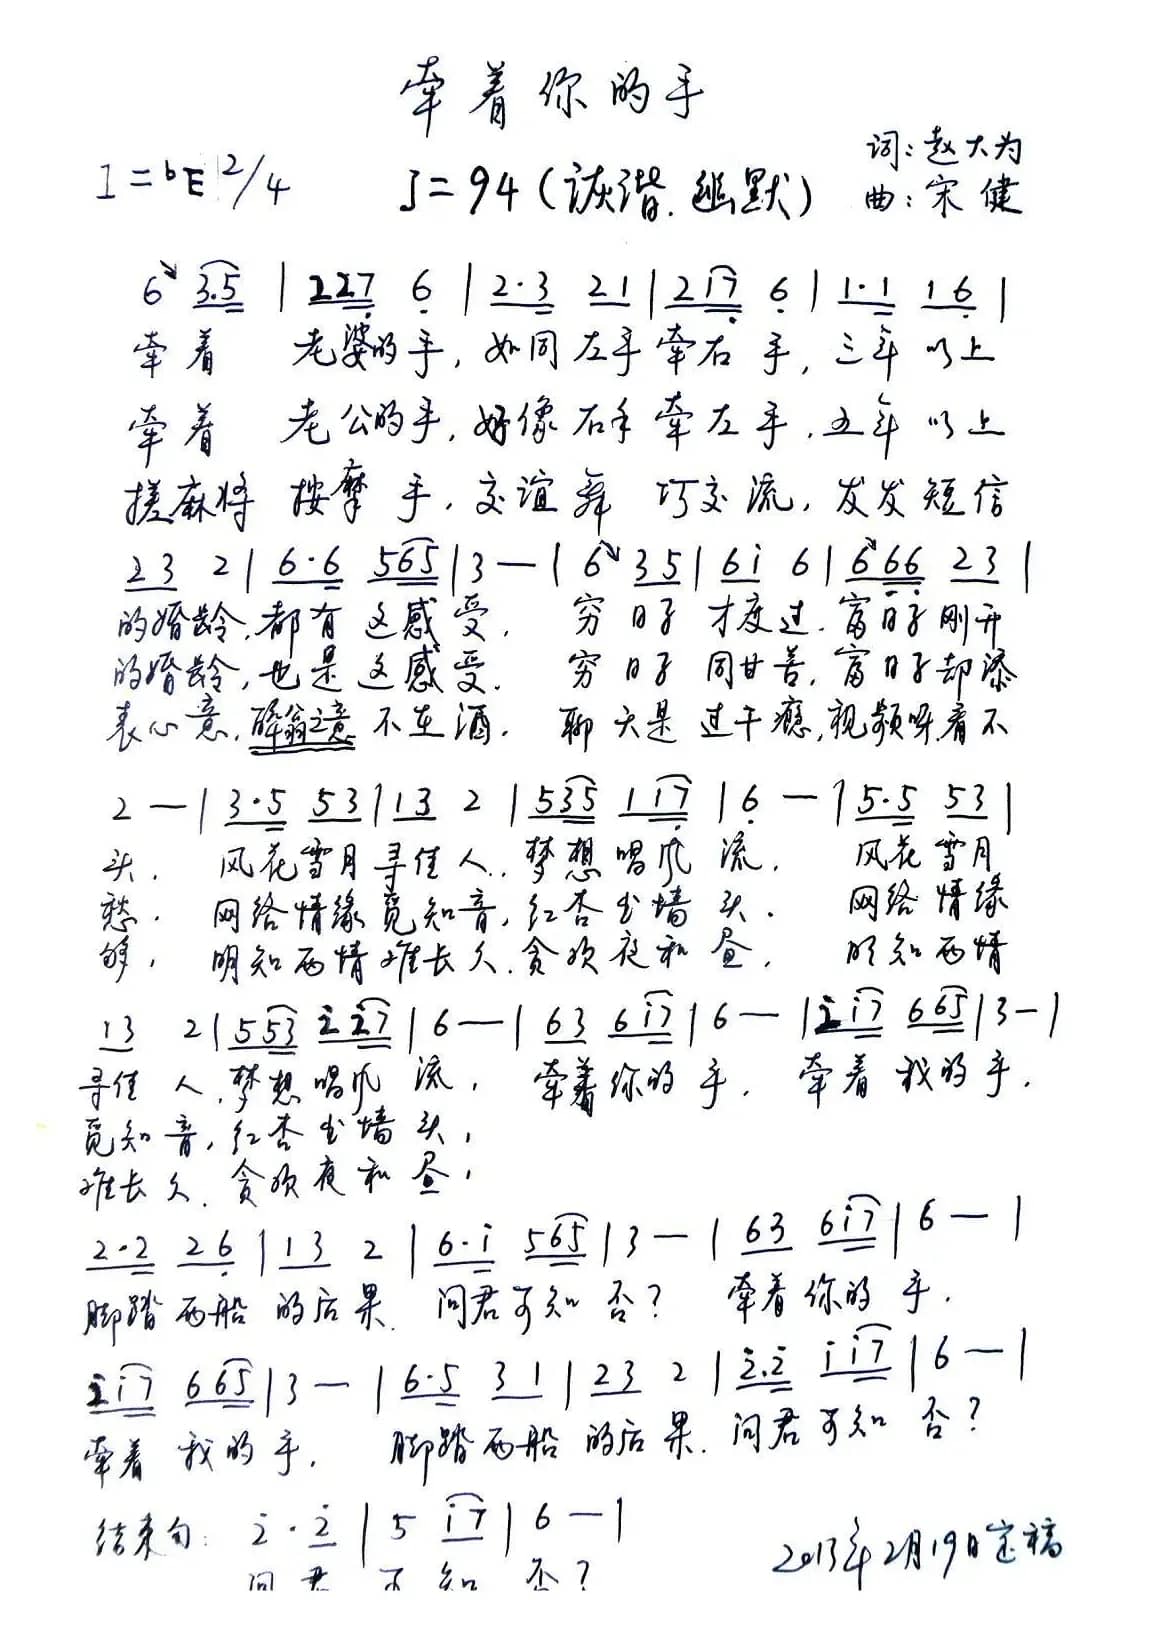 牵着你的手
词:赵大为
1=bE 2/4 ♩=94(诙谐.幽默) 曲:宋健
6 3.5 | 2 2 7 6 | 2·3 2 1 | 2 i 7 6 | 1·1 1 6 |
牵着 老婆的手,如同左手牵右手,三年以上
牵着 老公的手,好像右手牵左手,五年以上
搓麻将 按摩手,交谊舞 巧交流,发发短信
2 3 2 | 6·6 5 6 5 | 3 — | 6 3 5 | 6 i 6 | 6 6 6 2 3 |
的婚龄,都有这感受. 穷日子才度过.富日子刚开
的婚龄,也是这感受. 穷日子同甘苦,富日子却添
表心意,醉翁之意不在酒. 聊天是过干瘾,视频呀看不
2 — | 3·5 5 3 | 1 3 2 | 5 3 5 1 i 7 | 6 — | 5·5 5 3 |
头. 风花雪月寻佳人,梦想唱风流. 风花雪月
愁. 网络情缘觅知音,红杏出墙头. 网络情缘
够, 明知两情难长久.贪欢夜和昼, 明知两情
1 3 2 | 5 5 3 2̇ 2̇ 7 | 6 — | 6 3 6 i 7 | 6 — | 2̇ i 7 6 6 5 | 3 — |
寻佳人,梦想唱风流, 牵着你的手. 牵着我的手.
觅知音,红杏出墙头,
难长久.贪欢夜和昼,
2·2 2 6 | 1 3 2 | 6·i 5 6 5 | 3 — | 6 3 6 i 7 | 6 — |
脚踏两船的后果.问君可知否? 牵着你的手.
2̇ i 7 6 6 5 | 3 — | 6·5 3 1 | 2 3 2 | 2̇.2̇ i i 7 | 6 — |
牵着我的手. 脚踏两船的后果.问君可知否?
结束句: 2̇·2̇ | 5 i 7 | 6 — |
问君可知否?
2013年2月19日定稿